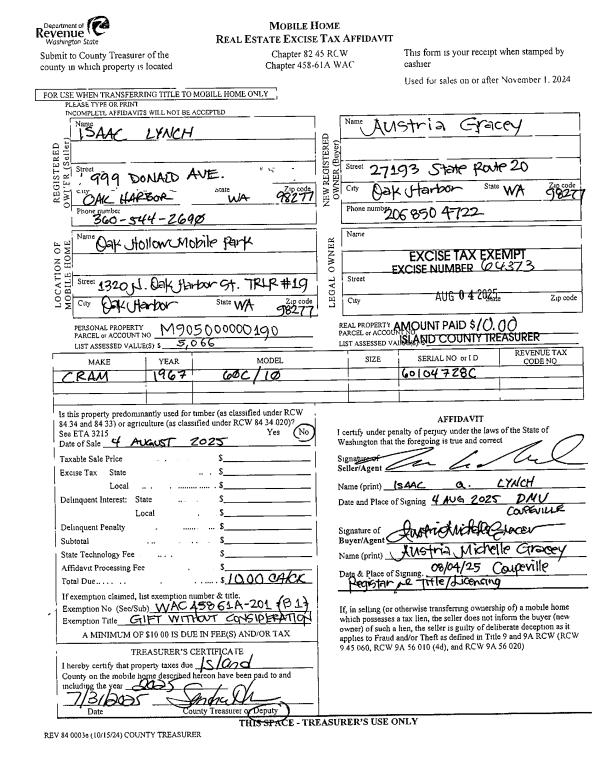 Department of
Revenue
Washington State
Submit to County Treasurer of the
county in which property is located
MOBILE HOME
REAL ESTATE EXCISE TAX AFFIDAVIT
Chapter 82 45 RCW
Chapter 458-61A WAC
This form is your receipt when stamped by
cashier
Used for sales on or after November 1, 2024
FOR USE WHEN TRANSFERRING TITLE TO MOBILE HOME ONLY
PLEASE TYPE OR PRINT
INCOMPLETE AFFIDAVITS WILL NOT BE ACCEPTED
REGISTERED
OWNER (Seller)
Name
ISAAC LYNCH
Street
999 DONALD AVE.
City State Zip code
OAK HARBOR WA 98277
Phone number
360-544-2690
NEW REGISTERED
OWNER (Buyer)
Name Austria Gracey
Street 27193 State Route 20
City Oak Harbor State WA Zip code 98277
Phone number 206 850 4722
LOCATION OF
MOBILE HOME
Name Oak Hollow Mobile Park
Street 1320 N. Oak Harbor St. TRLR #19
City Oak Harbor State WA Zip code 98277
LEGAL OWNER
Name
EXCISE TAX EXEMPT
EXCISE NUMBER 64373
Street
AUG 04 2025
City State Zip code
PERSONAL PROPERTY
PARCEL or ACCOUNT NO M905000000190
LIST ASSESSED VALUE(S) $ 5,066
REAL PROPERTY AMOUNT PAID $10.00
PARCEL or ACCOUNT NO
LIST ASSESSED VALUE(S) $ ISLAND COUNTY TREASURER
MAKE YEAR MODEL SIZE SERIAL NO or I D REVENUE TAX CODE NO
CRAM 1967 60C/10 60104728C
Is this property predominantly used for timber (as classified under RCW
84 34 and 84 33) or agriculture (as classified under RCW 84 34 020)?
See ETA 3215 Yes No
Date of Sale 4 AUGUST 2025
Taxable Sale Price $
Excise Tax State $
Local $
Delinquent Interest: State $
Local $
Delinquent Penalty $
Subtotal $
State Technology Fee $
Affidavit Processing Fee $
Total Due $ 10.00 CA/CK
If exemption claimed, list exemption number & title.
Exemption No (Sec/Sub) WAC 458 61A-201 (B1)
Exemption Title GIFT WITHOUT CONSIDERATION
A MINIMUM OF $10 00 IS DUE IN FEE(S) AND/OR TAX
TREASURER'S CERTIFICATE
I hereby certify that property taxes due Island
County on the mobile home described hereon have been paid to and
including the year 2025
7/31/2025
Date County Treasurer or Deputy
AFFIDAVIT
I certify under penalty of perjury under the laws of the State of
Washington that the foregoing is true and correct
Signature of
Seller/Agent
Name (print) ISAAC a. LYNCH
Date and Place of Signing 4 AUG 2025 DMV
COUPEVILLE
Signature of
Buyer/Agent
Name (print) Austria Michelle Gracey
Date & Place of Signing 08/04/25 Coupeville
Title/Licensing
If, in selling (or otherwise transferring ownership of) a mobile home
which possesses a tax lien, the seller does not inform the buyer (new
owner) of such a lien, the seller is guilty of deliberate deception as it
applies to Fraud and/or Theft as defined in Title 9 and 9A RCW (RCW
9.45 060, RCW 9A 56 010 (4d), and RCW 9A 56 020)
THIS SPACE - TREASURER'S USE ONLY
REV 84 0003e (10/15/24) COUNTY TREASURER